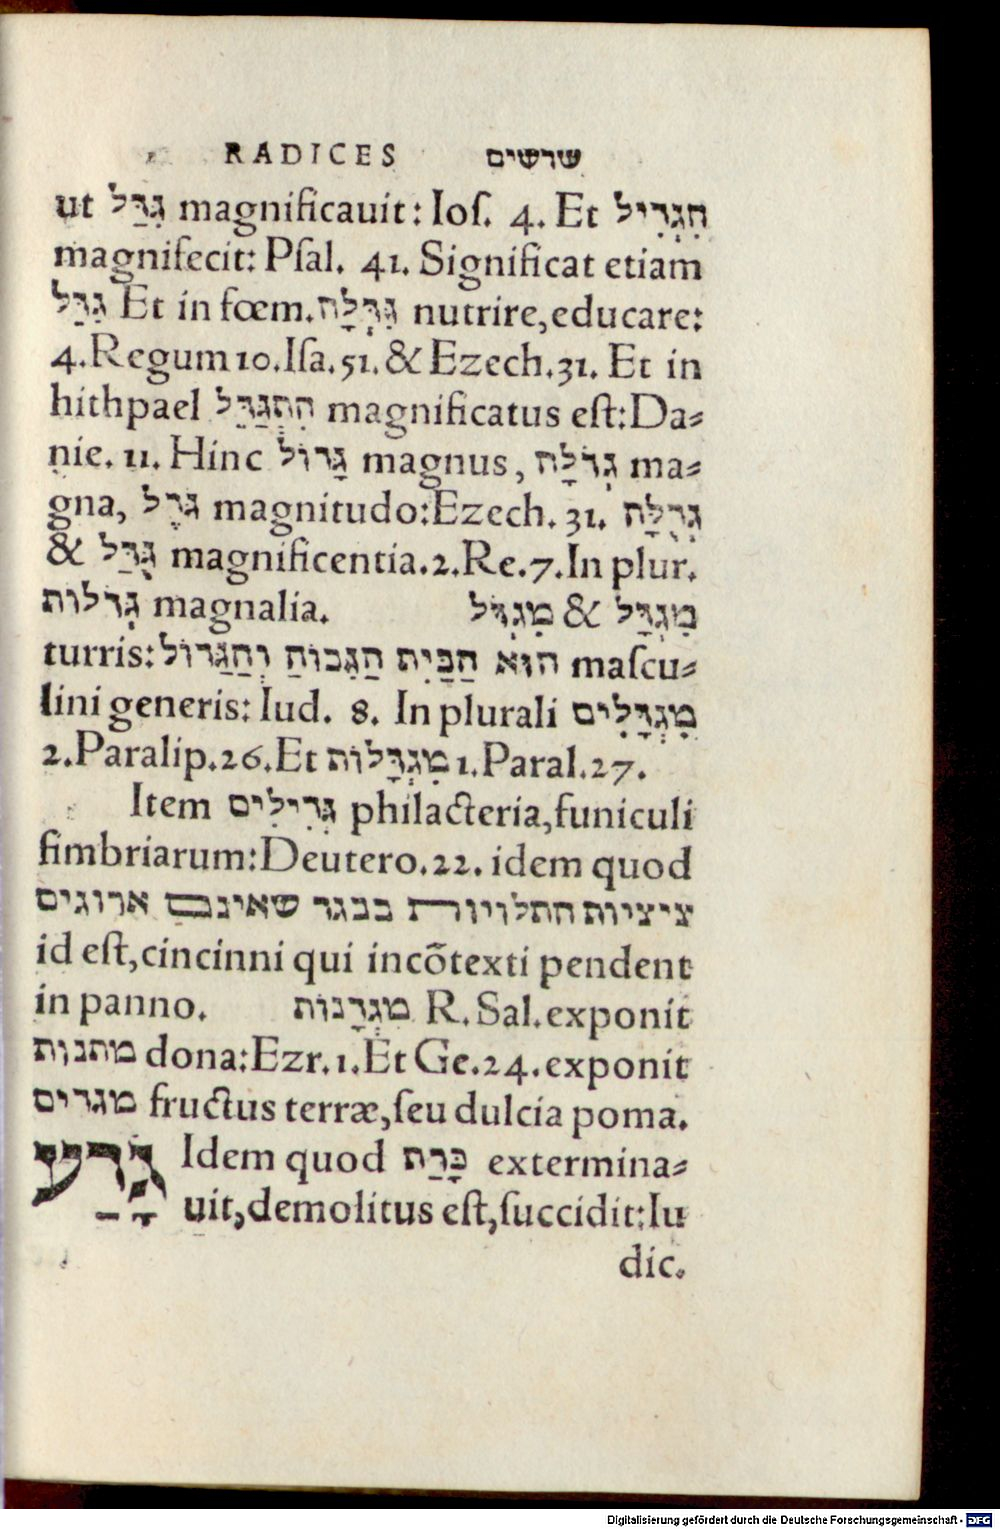 RADICES שרשים
ut גִּדַּל magnificauit: Ioſ. 4. Et הִגְדִּיל
magnifecit: Pſal. 41. Significat etiam
גִּדַּל Et in fœm. גִּדְּלָה nutrire, educare:
4. Regum 10. Iſa. 51. & Ezech. 31. Et in
hithpael הִתְגַּדֵּל magnificatus eſt: Da⸗
nie. 11. Hinc גָּדוֹל magnus, גְּדֹלָה ma⸗
gna, גֹּדֶל magnitudo: Ezech. 31. גְּדֻלָּה
& גֻּדַּל magnificentia. 2. Re. 7. In plur.
גְּדֹלוֹת magnalia. מִגְדָּל & מִגְדֹּל
turris: הוּא הַבַּיִת הַגִּבוֹהַּ וְהַגַּדוֹל maſcu⸗
lini generis: Iud. 8. In plurali מִגְדָּלִים
2. Paralip. 26. Et מִגְדָּלוֹת 1. Paral. 27.
Item גְּדִילִים philacteria, funiculi
fimbriarum: Deutero. 22. idem quod
ציציות התלויות בבגד שאינם ארוגים
id eſt, cincinni qui incõtexti pendent
in panno. מִגְדָּנוֹת R. Sal. exponit
מתנות dona: Ezr. 1. Et Ge. 24. exponit
מגדים fructus terræ, ſeu dulcia poma.
גָּדַע Idem quod כָּרַת extermina⸗
uit, demolitus eſt, ſuccidit: Iu
dic.
Digitalisierung gefördert durch die Deutsche Forschungsgemeinschaft - DFG